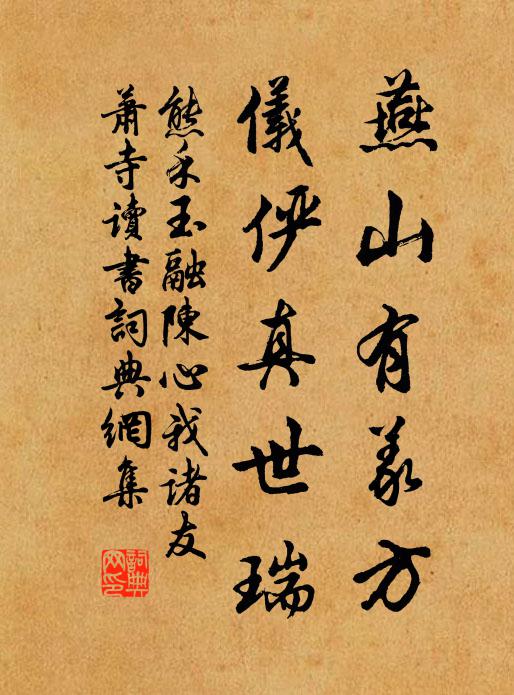 燕山有義方
儀俨真世瑞
熊禾玉融陳心我諸友
蕭寺讀書詞典網集
詞典网印